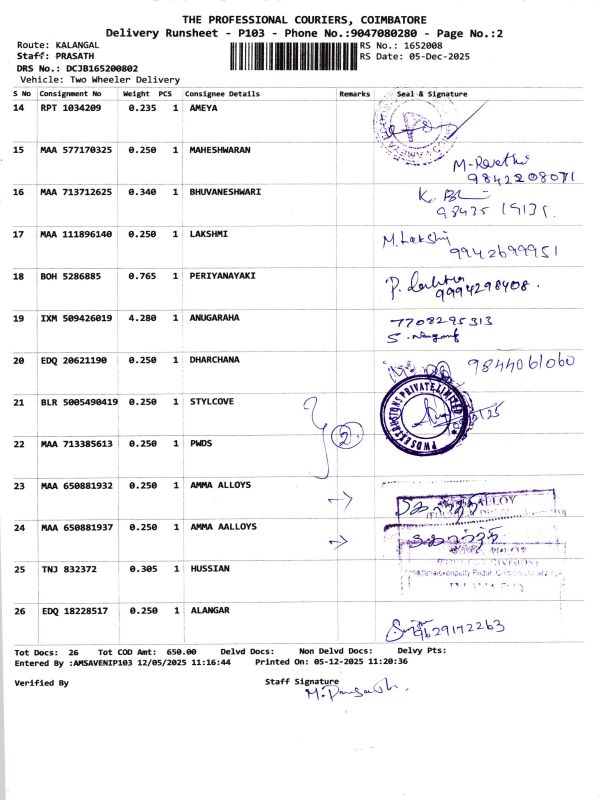 THE PROFESSIONAL COURIERS, COIMBATORE
Delivery Runsheet - P103 - Phone No.:9047080280 - Page No.:2
Route: KALANGAL RS No.: 1652008
Staff: PRASATH RS Date: 05-Dec-2025
DRS No.: DCJB165200802
Vehicle: Two Wheeler Delivery
S No Consignment No Weight PCS Consignee Details Remarks Seal & Signature
14 RPT 1034209 0.235 1 AMEYA
15 MAA 577170325 0.250 1 MAHESHWARAN
M. Revathi
9842208071
16 MAA 713712625 0.340 1 BHUVANESHWARI
98435 19131
17 MAA 111896140 0.250 1 LAKSHMI
M. Lakshmi
9942699951
18 BOH 5286885 0.765 1 PERIYANAYAKI
9994298408.
19 IXM 509426019 4.280 1 ANUGARAHA
7708295313
20 EDQ 20621190 0.250 1 DHARCHANA
9844061060
21 BLR 5005490419 0.250 1 STYLCOVE
2
PRIVATE LIMITED
22 MAA 713385613 0.250 1 PWDS
23 MAA 650881932 0.250 1 AMMA ALLOYS
ALLOY
24 MAA 650881937 0.250 1 AMMA AALLOYS
25 TNJ 832372 0.305 1 HUSSIAN
26 EDQ 18228517 0.250 1 ALANGAR
9629172263
Tot Docs: 26 Tot COD Amt: 650.00 Delvd Docs: Non Delvd Docs: Delvy Pts:
Entered By :AMSAVENIP103 12/05/2025 11:16:44 Printed On: 05-12-2025 11:20:36
Verified By Staff Signature
M. Prasath.